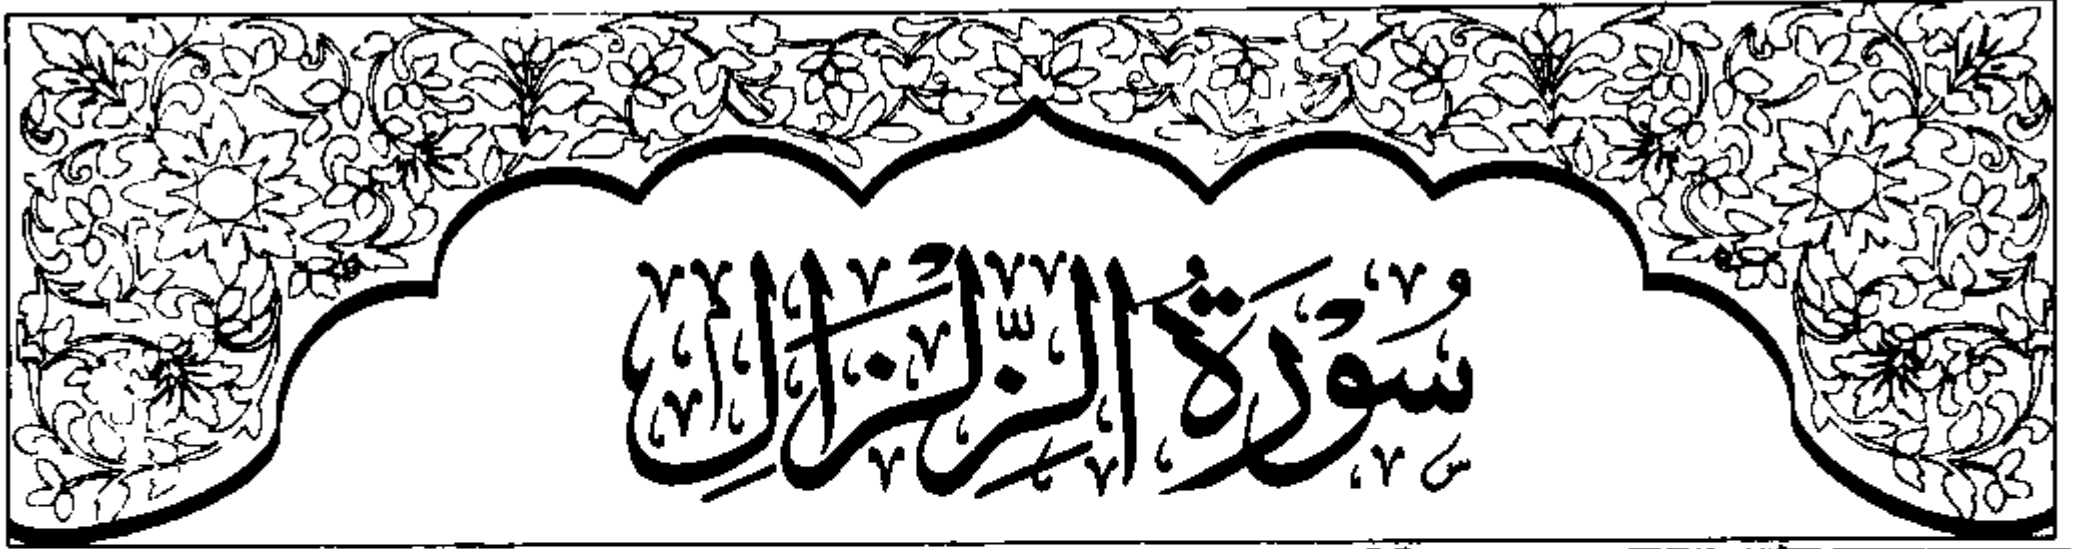 سُوْرَةُ الزِّلْزَالِ